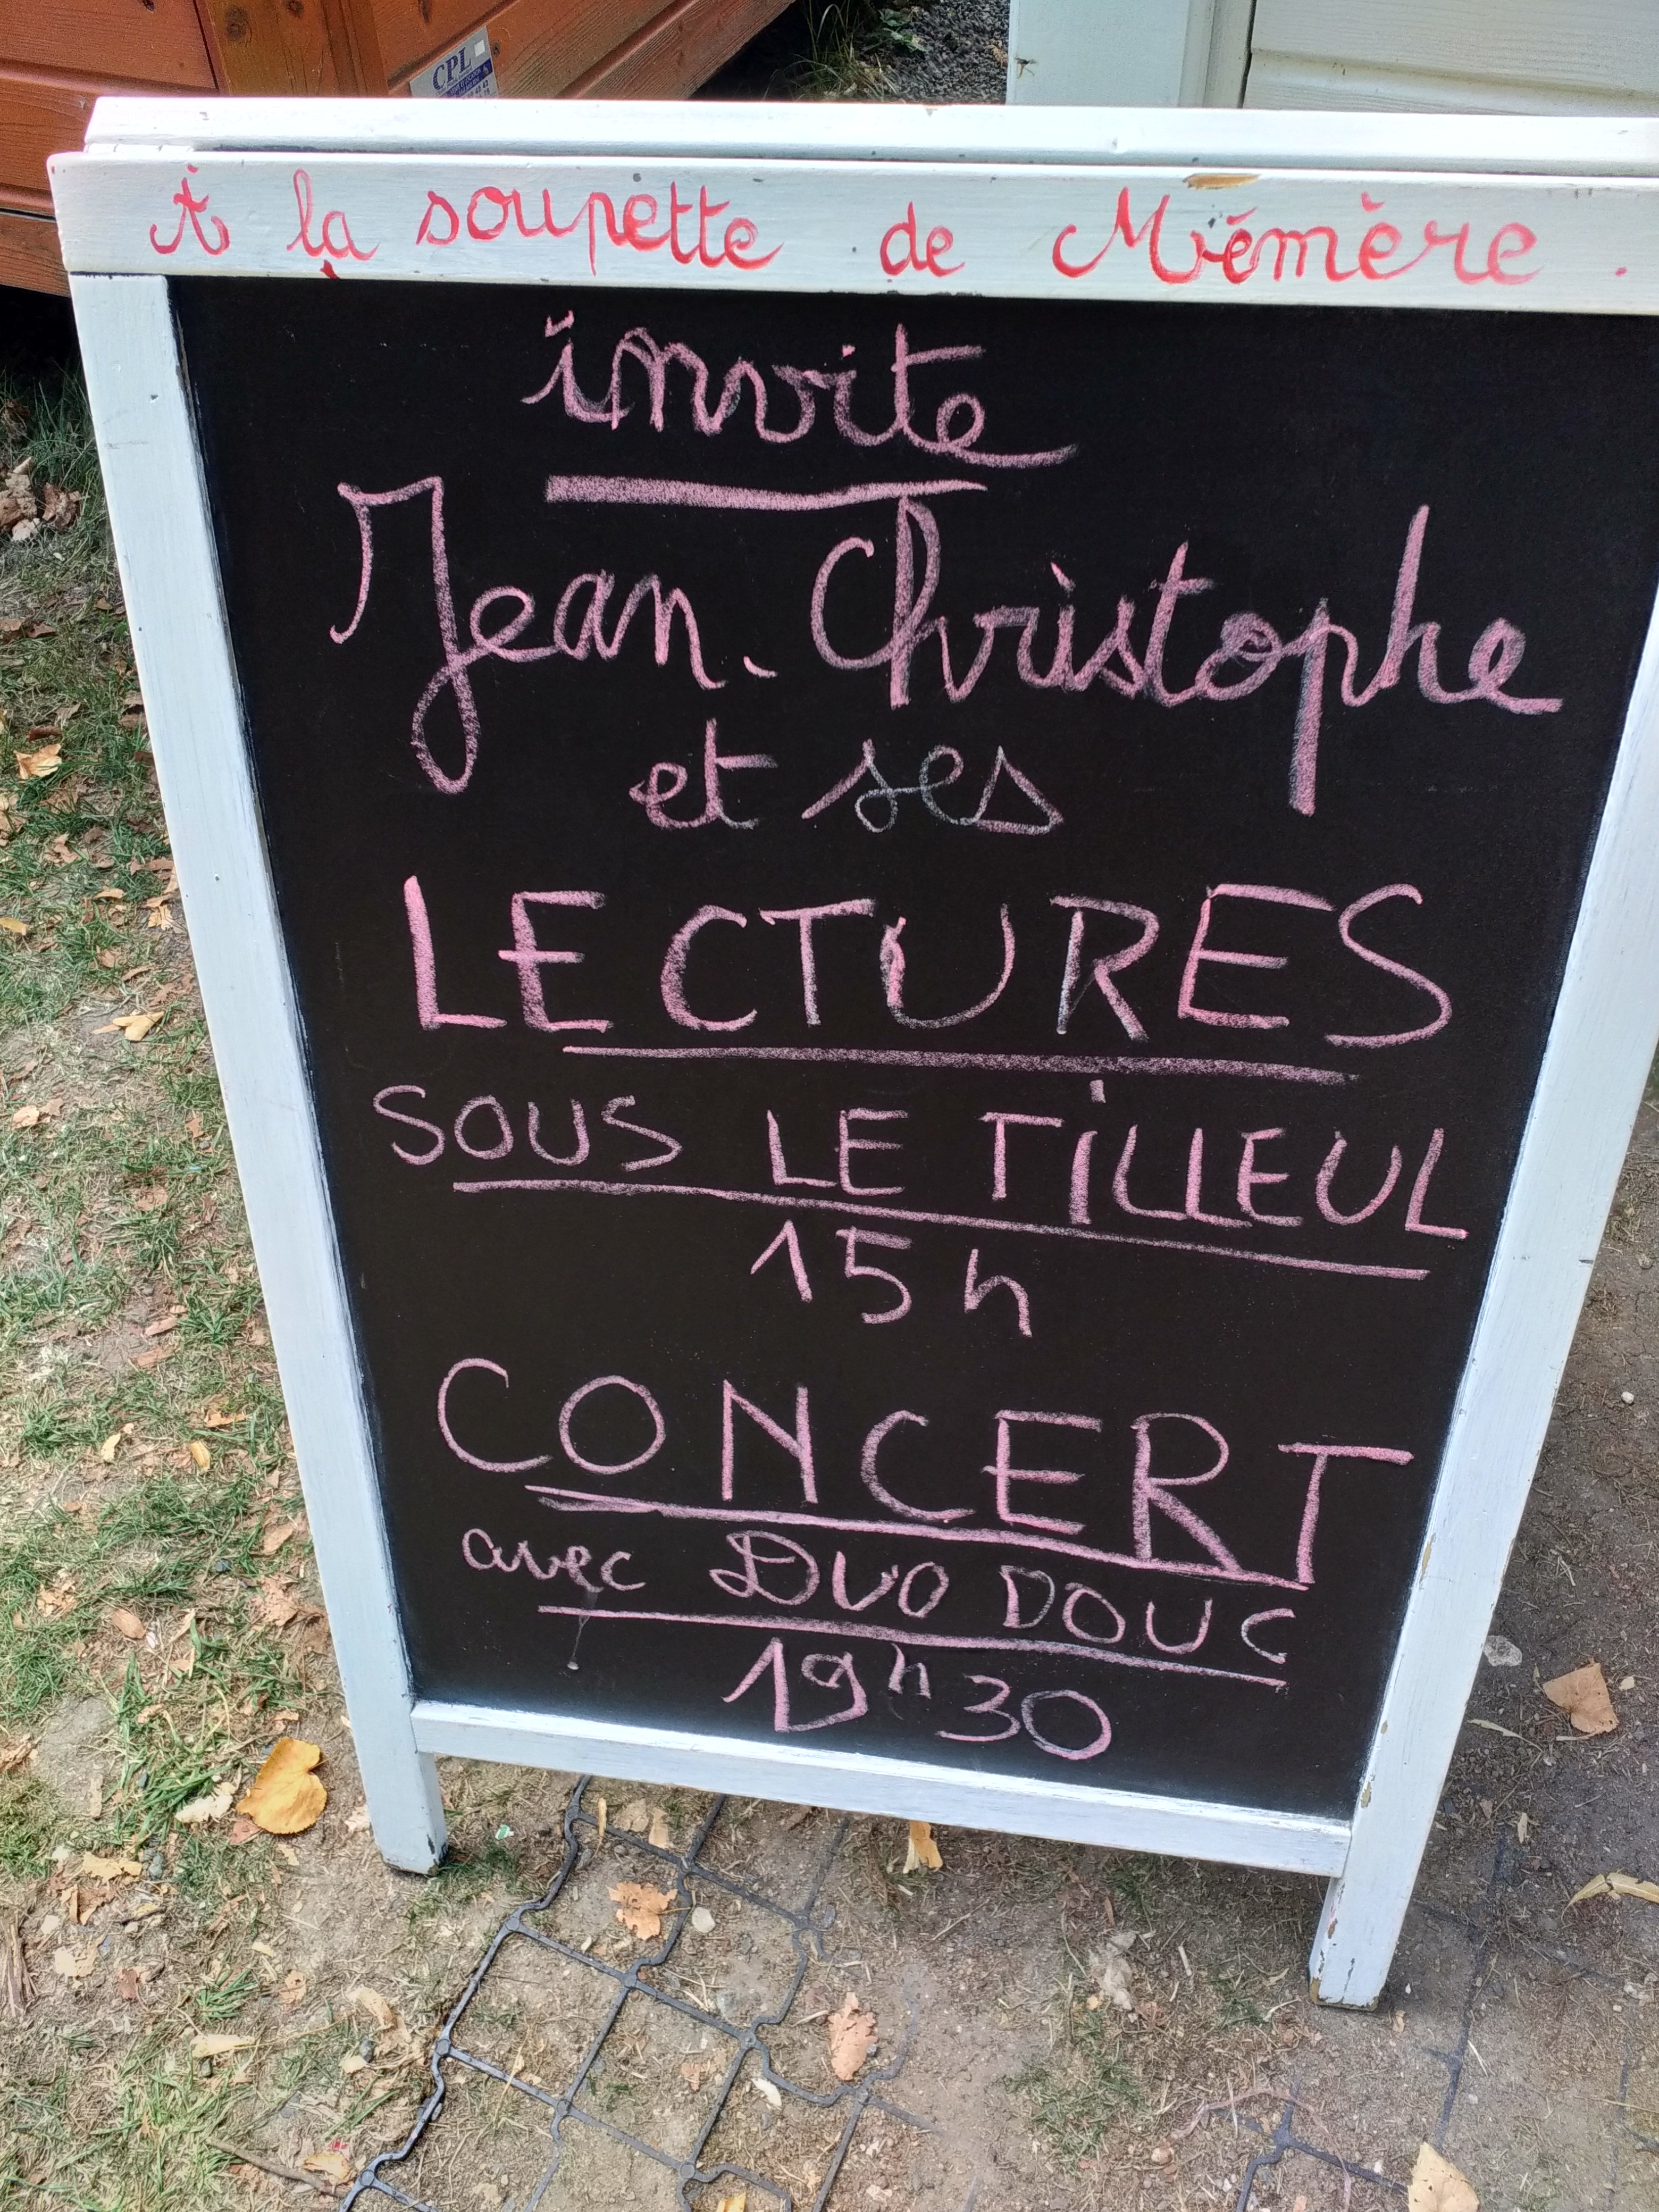 CPL
À la soupette de Mémère.
invite
Jean-Christophe
et ses
LECTURES
SOUS LE TiLLEUL
15h
CONCERT
avec DUO DOUC
19h30